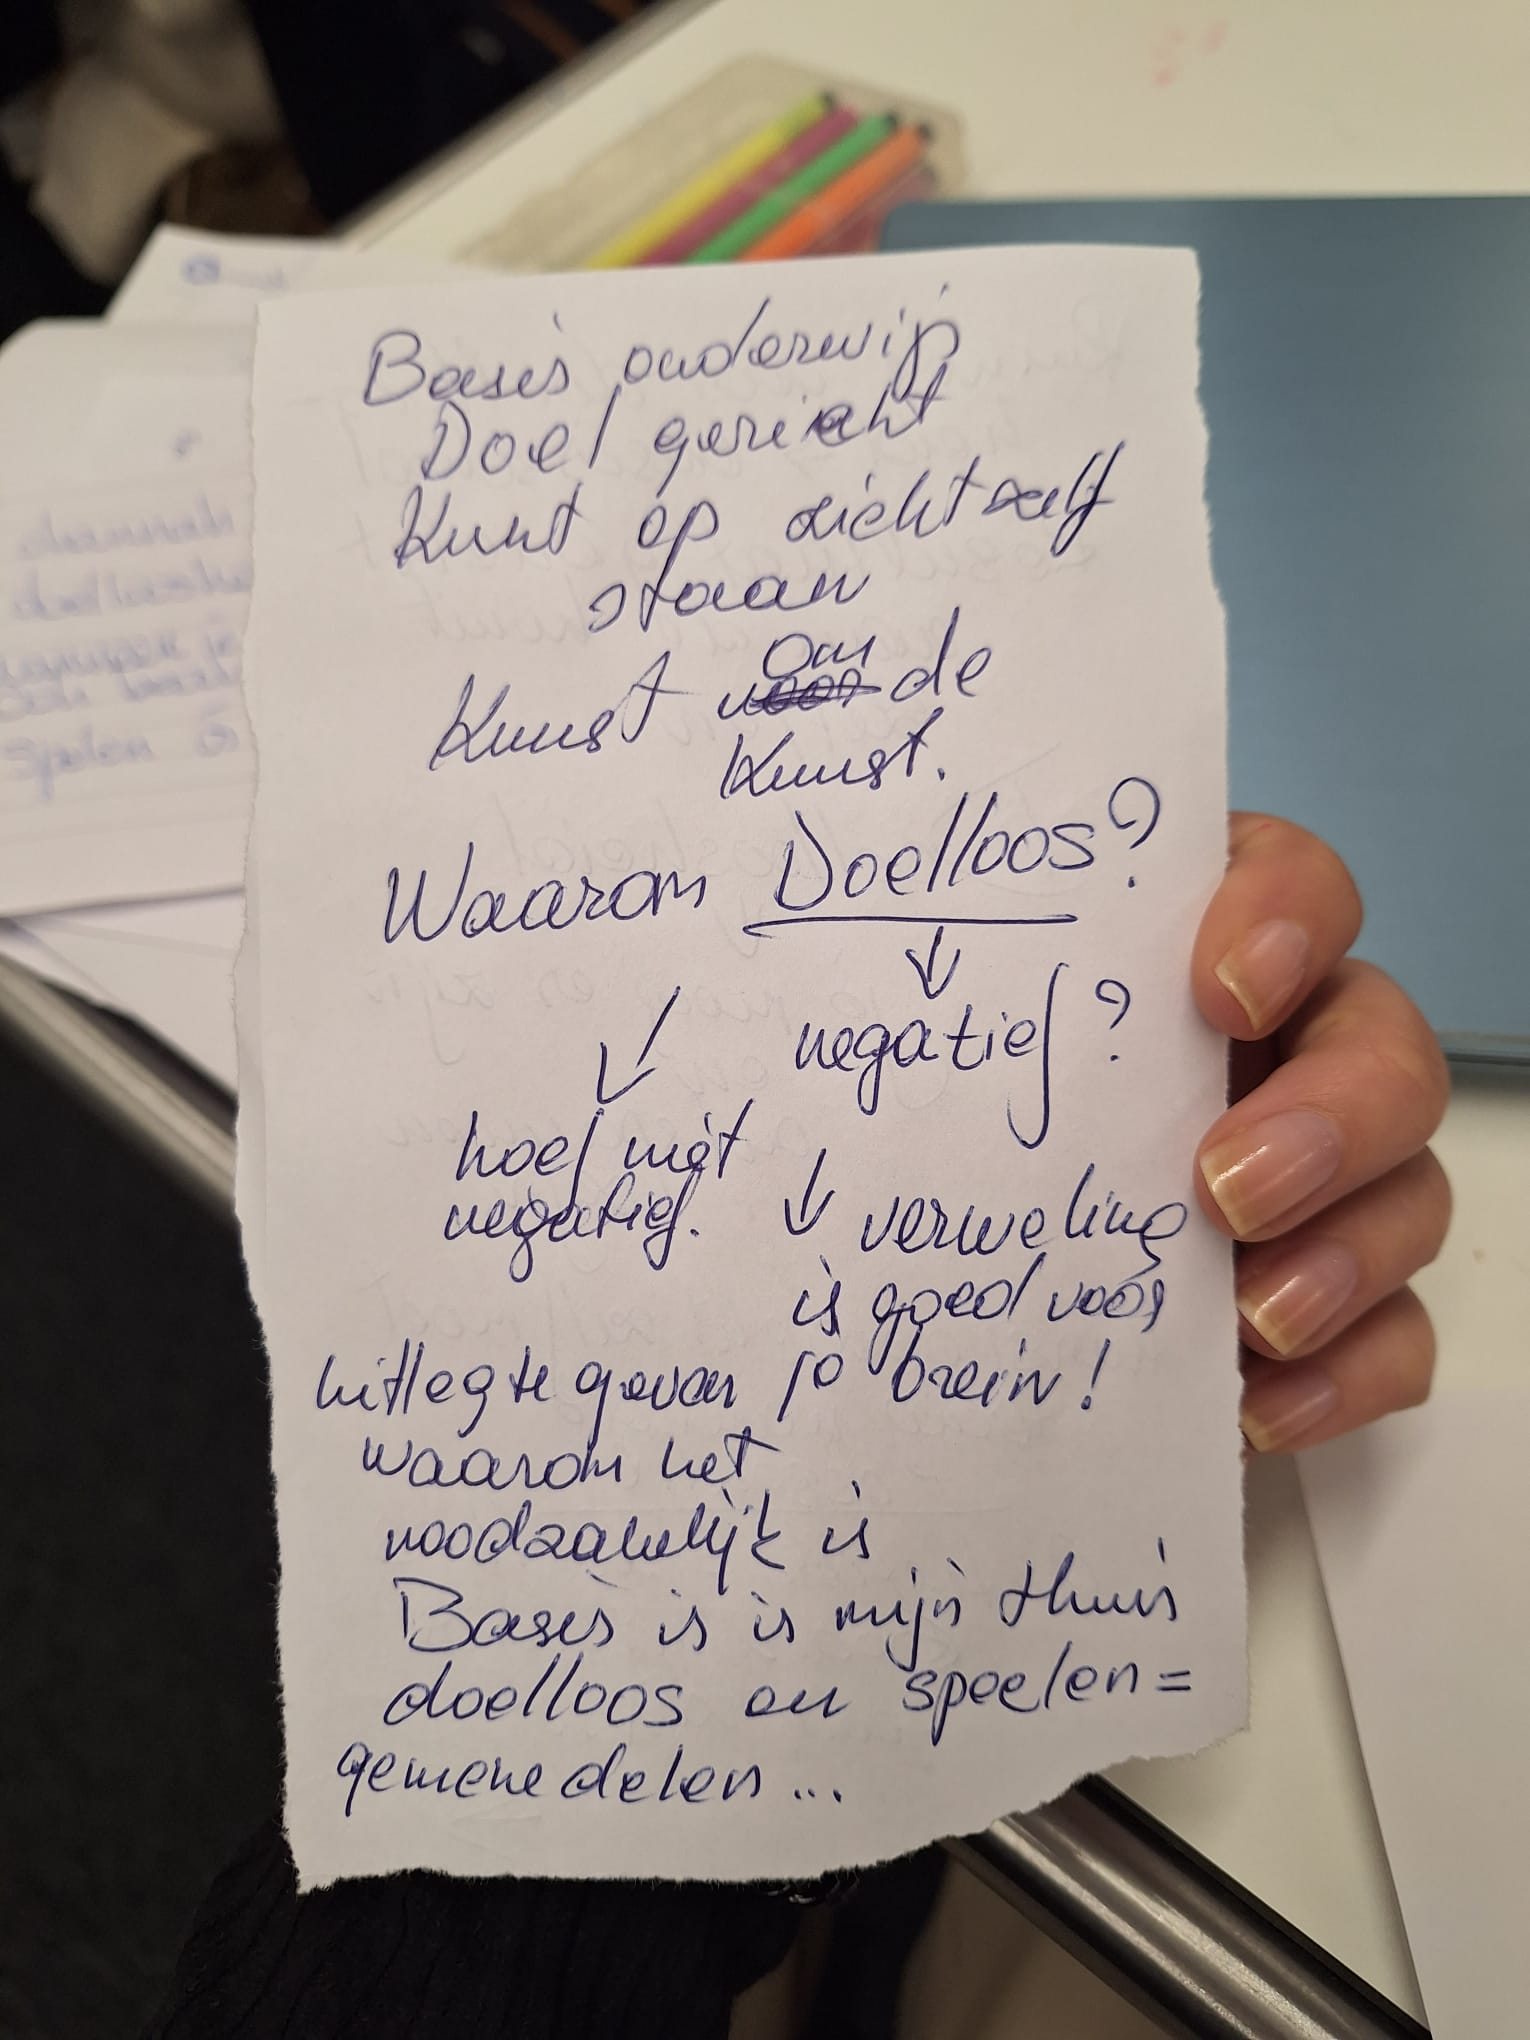 Basis onderwijs
Doel gericht
Kunst op zichtzelf
staan
Kunst om de
voor
Kunst.
Waarom Doelloos?
negatief?
hoef niet
negatief.
verveling
is goed voor
je brein!
uitleg te geven
waarom het
noodzakelijk is
Basis is is mijn thuis
doelloos en spelen =
gemenedelen...
spelen